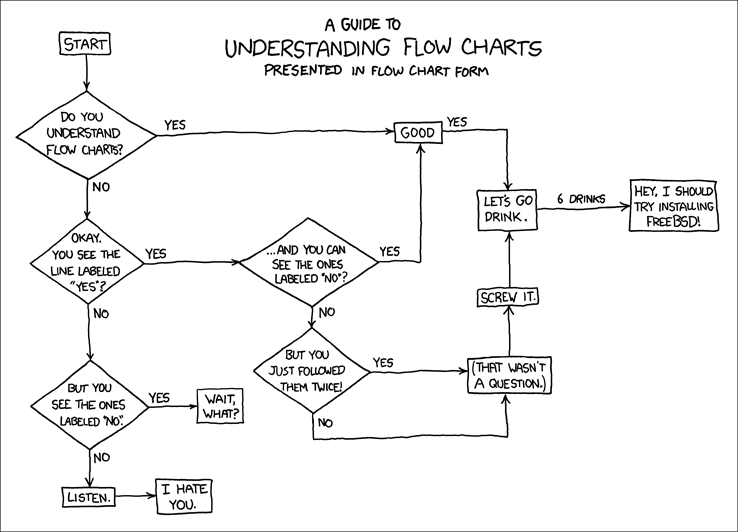 A GUIDE TO
UNDERSTANDING FLOW CHARTS
PRESENTED IN FLOW CHART FORM
START
DO YOU
UNDERSTAND
FLOW CHARTS?
YES
GOOD
YES
NO
LET'S GO
DRINK.
6 DRINKS
HEY, I SHOULD
TRY INSTALLING
FREEBSD!
OKAY.
YOU SEE THE
LINE LABELED
"YES"?
YES
...AND YOU CAN
SEE THE ONES
LABELED "NO"?
YES
NO
SCREW IT.
NO
BUT YOU
JUST FOLLOWED
THEM TWICE!
YES
(THAT WASN'T
A QUESTION.)
NO
BUT YOU
SEE THE ONES
LABELED "NO".
YES
WAIT,
WHAT?
NO
LISTEN.
I HATE
YOU.